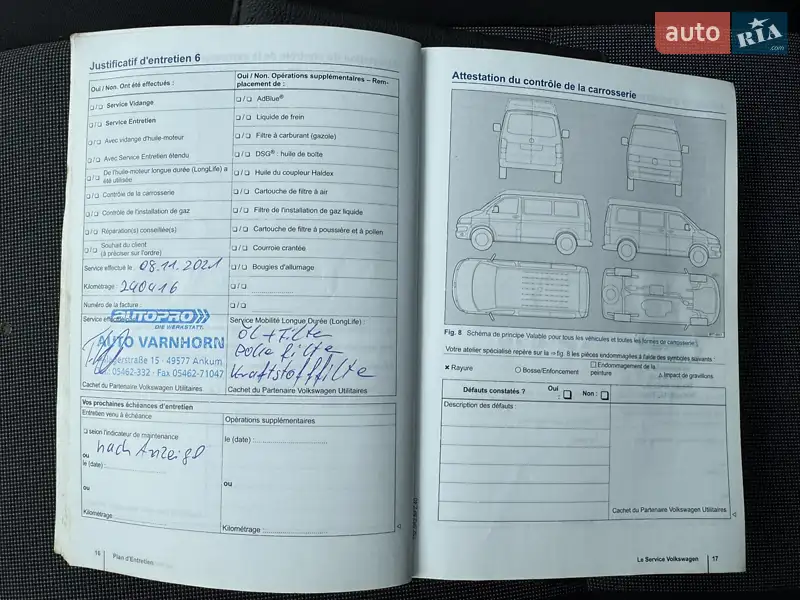 auto RIA .com
Justificatif d'entretien 6
Oui / Non. Ont été effectués :
❑ / ❑ Service Vidange
❑ / ❑ Service Entretien
❑ / ❑ Avec vidange d'huile-moteur
❑ / ❑ Avec Service Entretien étendu
❑ / ❑ De l'huile-moteur longue durée (LongLife) a été utilisée
❑ / ❑ Contrôle de la carrosserie
❑ / ❑ Contrôle de l'installation de gaz
❑ / ❑ Réparation(s) conseillée(s)
❑ / ❑ Souhait du client
(à préciser sur l'ordre)
Service effectué le : 08.11.2021
Kilométrage : 240416
Numéro de la facture :
Service effectué
AUTOPRO
DIE WERKSTATT.
AUTO VARNHORN
straße 15 · 49577 Ankum
05462-332 · Fax 05462-71047
Cachet du Partenaire Volkswagen Utilitaires
Oui / Non. Opérations supplémentaires – Rem-
placement de :
❑ / ❑ AdBlue®
❑ / ❑ Liquide de frein
❑ / ❑ Filtre à carburant (gazole)
❑ / ❑ DSG® : huile de boîte
❑ / ❑ Huile du coupleur Haldex
❑ / ❑ Cartouche de filtre à air
❑ / ❑ Filtre de l'installation de gaz liquide
❑ / ❑ Cartouche de filtre à poussière et à pollen
❑ / ❑ Courroie crantée
❑ / ❑ Bougies d'allumage
❑ / ❑
❑ / ❑
Service Mobilité Longue Durée (LongLife) :
Öl + Filte
Pollefilte
Kraftstofffilte
Cachet du Partenaire Volkswagen Utilitaires
Vos prochaines échéances d'entretien
Entretien venu à échéance
❑ selon l'indicateur de maintenance
nach Anzeige
ou
le (date) :
ou
Kilométrage
Opérations supplémentaires
le (date) :
ou
Kilométrage :
16 Plan d'Entretien
Attestation du contrôle de la carrosserie
Fig. 8 Schéma de principe Valable pour tous les véhicules et toutes les formes de carrosserie
Votre atelier spécialisé repère sur la ⇒ fig. 8 les pièces endommagées à l'aide des symboles suivants :
✗ Rayure
○ Bosse/Enfoncement
□ Endommagement de la
peinture
△ Impact de gravillons
Défauts constatés ? Oui : ❑ Non : ❑
Description des défauts
Cachet du Partenaire Volkswagen Utilitaires
Le Service Volkswagen 17